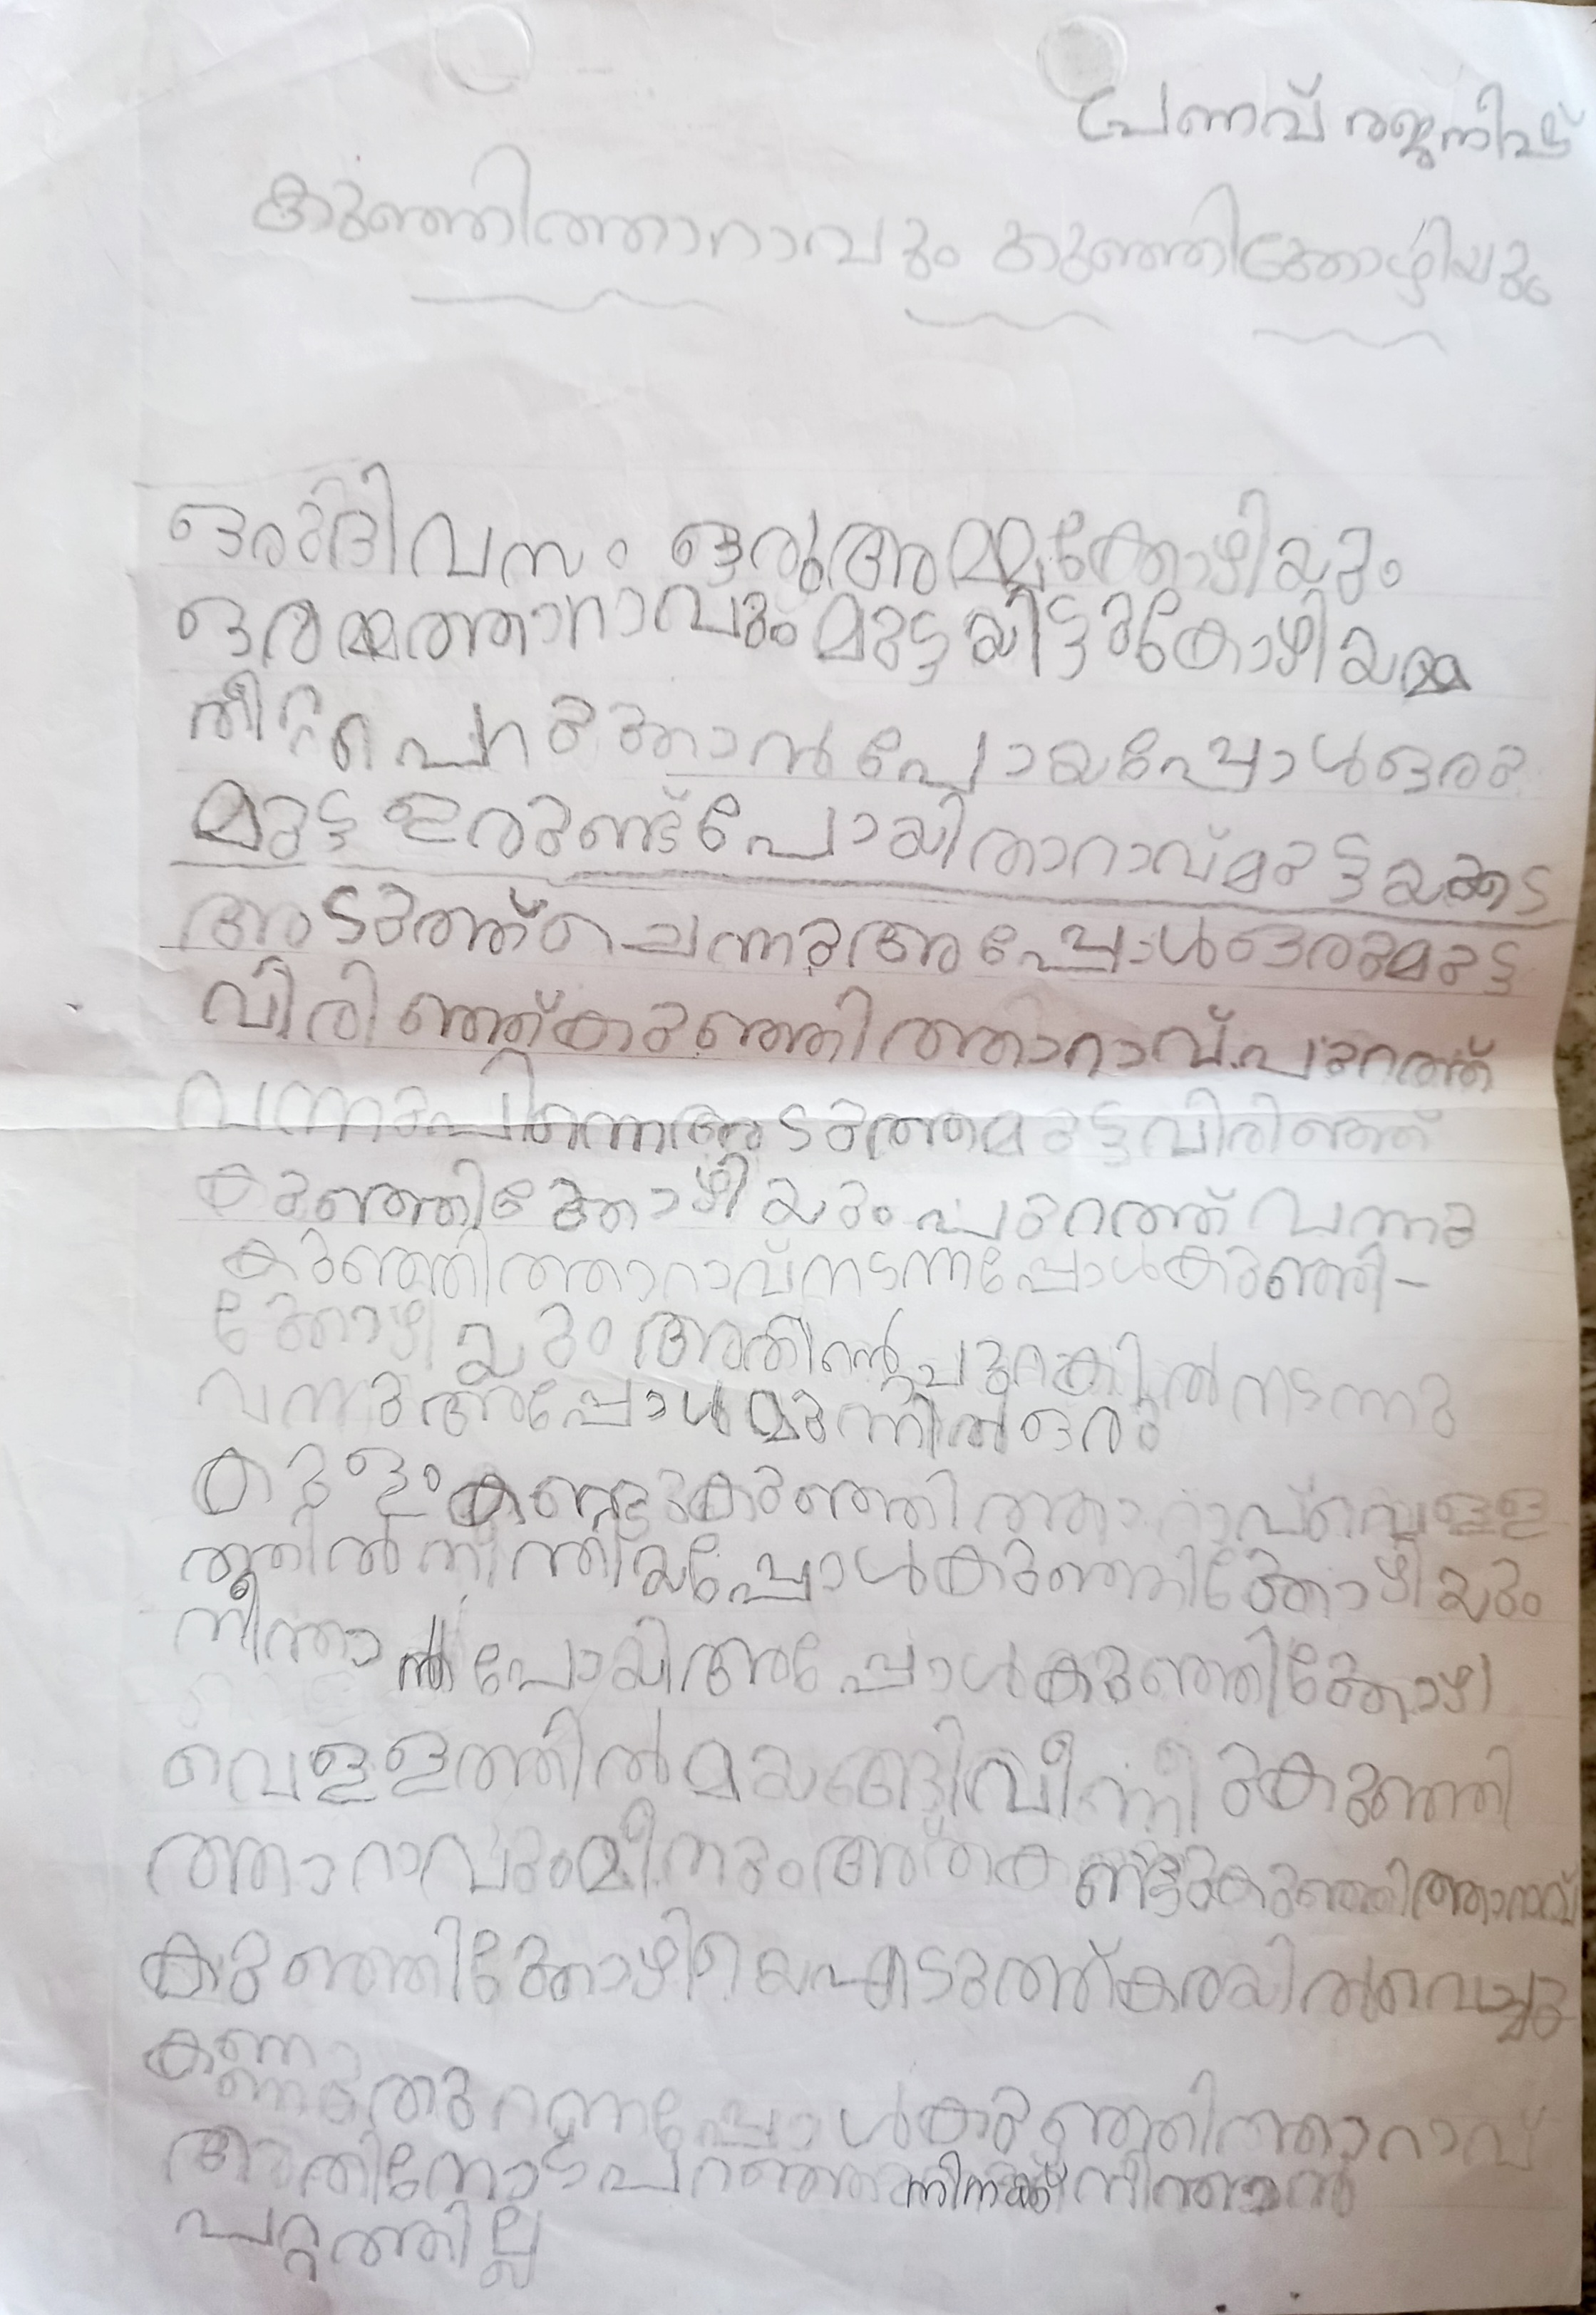 പ്രണവ് രജനീഷ്
കുഞ്ഞിത്താറാവും കുഞ്ഞിക്കോഴിയും
ഒരുദിവസം ഒരുഅമ്മക്കോഴിയും
ഒരമ്മത്താറാവും മുട്ടയിട്ടുകോഴിയമ്മ
തീറ്റപെറുക്കാൻപോയപ്പോൾഒരു
മുട്ട ഉരുണ്ട്പോയിതാറാവ്മുട്ടയുടെ
അടുത്ത്ചെന്നുഅപ്പോൾഒരുമുട്ട
വിരിഞ്ഞ്കുഞ്ഞിത്താറാവ്പുറത്ത്
വന്നുപിന്നെഅടുത്തമുട്ടവിരിഞ്ഞ്
കുഞ്ഞിക്കോഴിയുംപുറത്ത് വന്നു
കുഞ്ഞിത്താറാവ്നടന്നപ്പോൾകുഞ്ഞി-
ക്കോഴിയുംഅതിന്റെപുറകിൽനടന്നു
വന്നുഅപ്പോൾമുന്നിൽഒരു
കുളംകണ്ടുകുഞ്ഞിത്താറാവ്വെള്ള
ത്തിൽനീന്തിയപ്പോൾകുഞ്ഞിക്കോഴിയും
നീന്താൻപോയിഅപ്പോൾകുഞ്ഞിക്കോഴി
വെള്ളത്തിൽമയങ്ങിവീണു കുഞ്ഞി
ത്താറാവുംമീനുംഅത്കണ്ടുകുഞ്ഞിത്താറാവ്
കുഞ്ഞിക്കോഴിയെഎടുത്ത്കരയിൽവെച്ചു
കണ്ണുതുറന്നപ്പോൾകുഞ്ഞിത്താറാവ്
അതിനോട്പറഞ്ഞുനിനക്ക്നീന്താൻ
പറ്റത്തില്ല